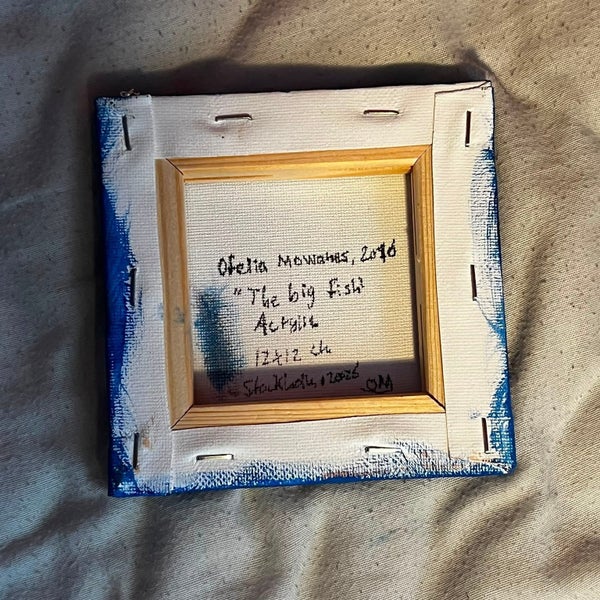 Ofelia
"The big fish"
Acrylic
12x12 cm
Stockholm, 2026
OM